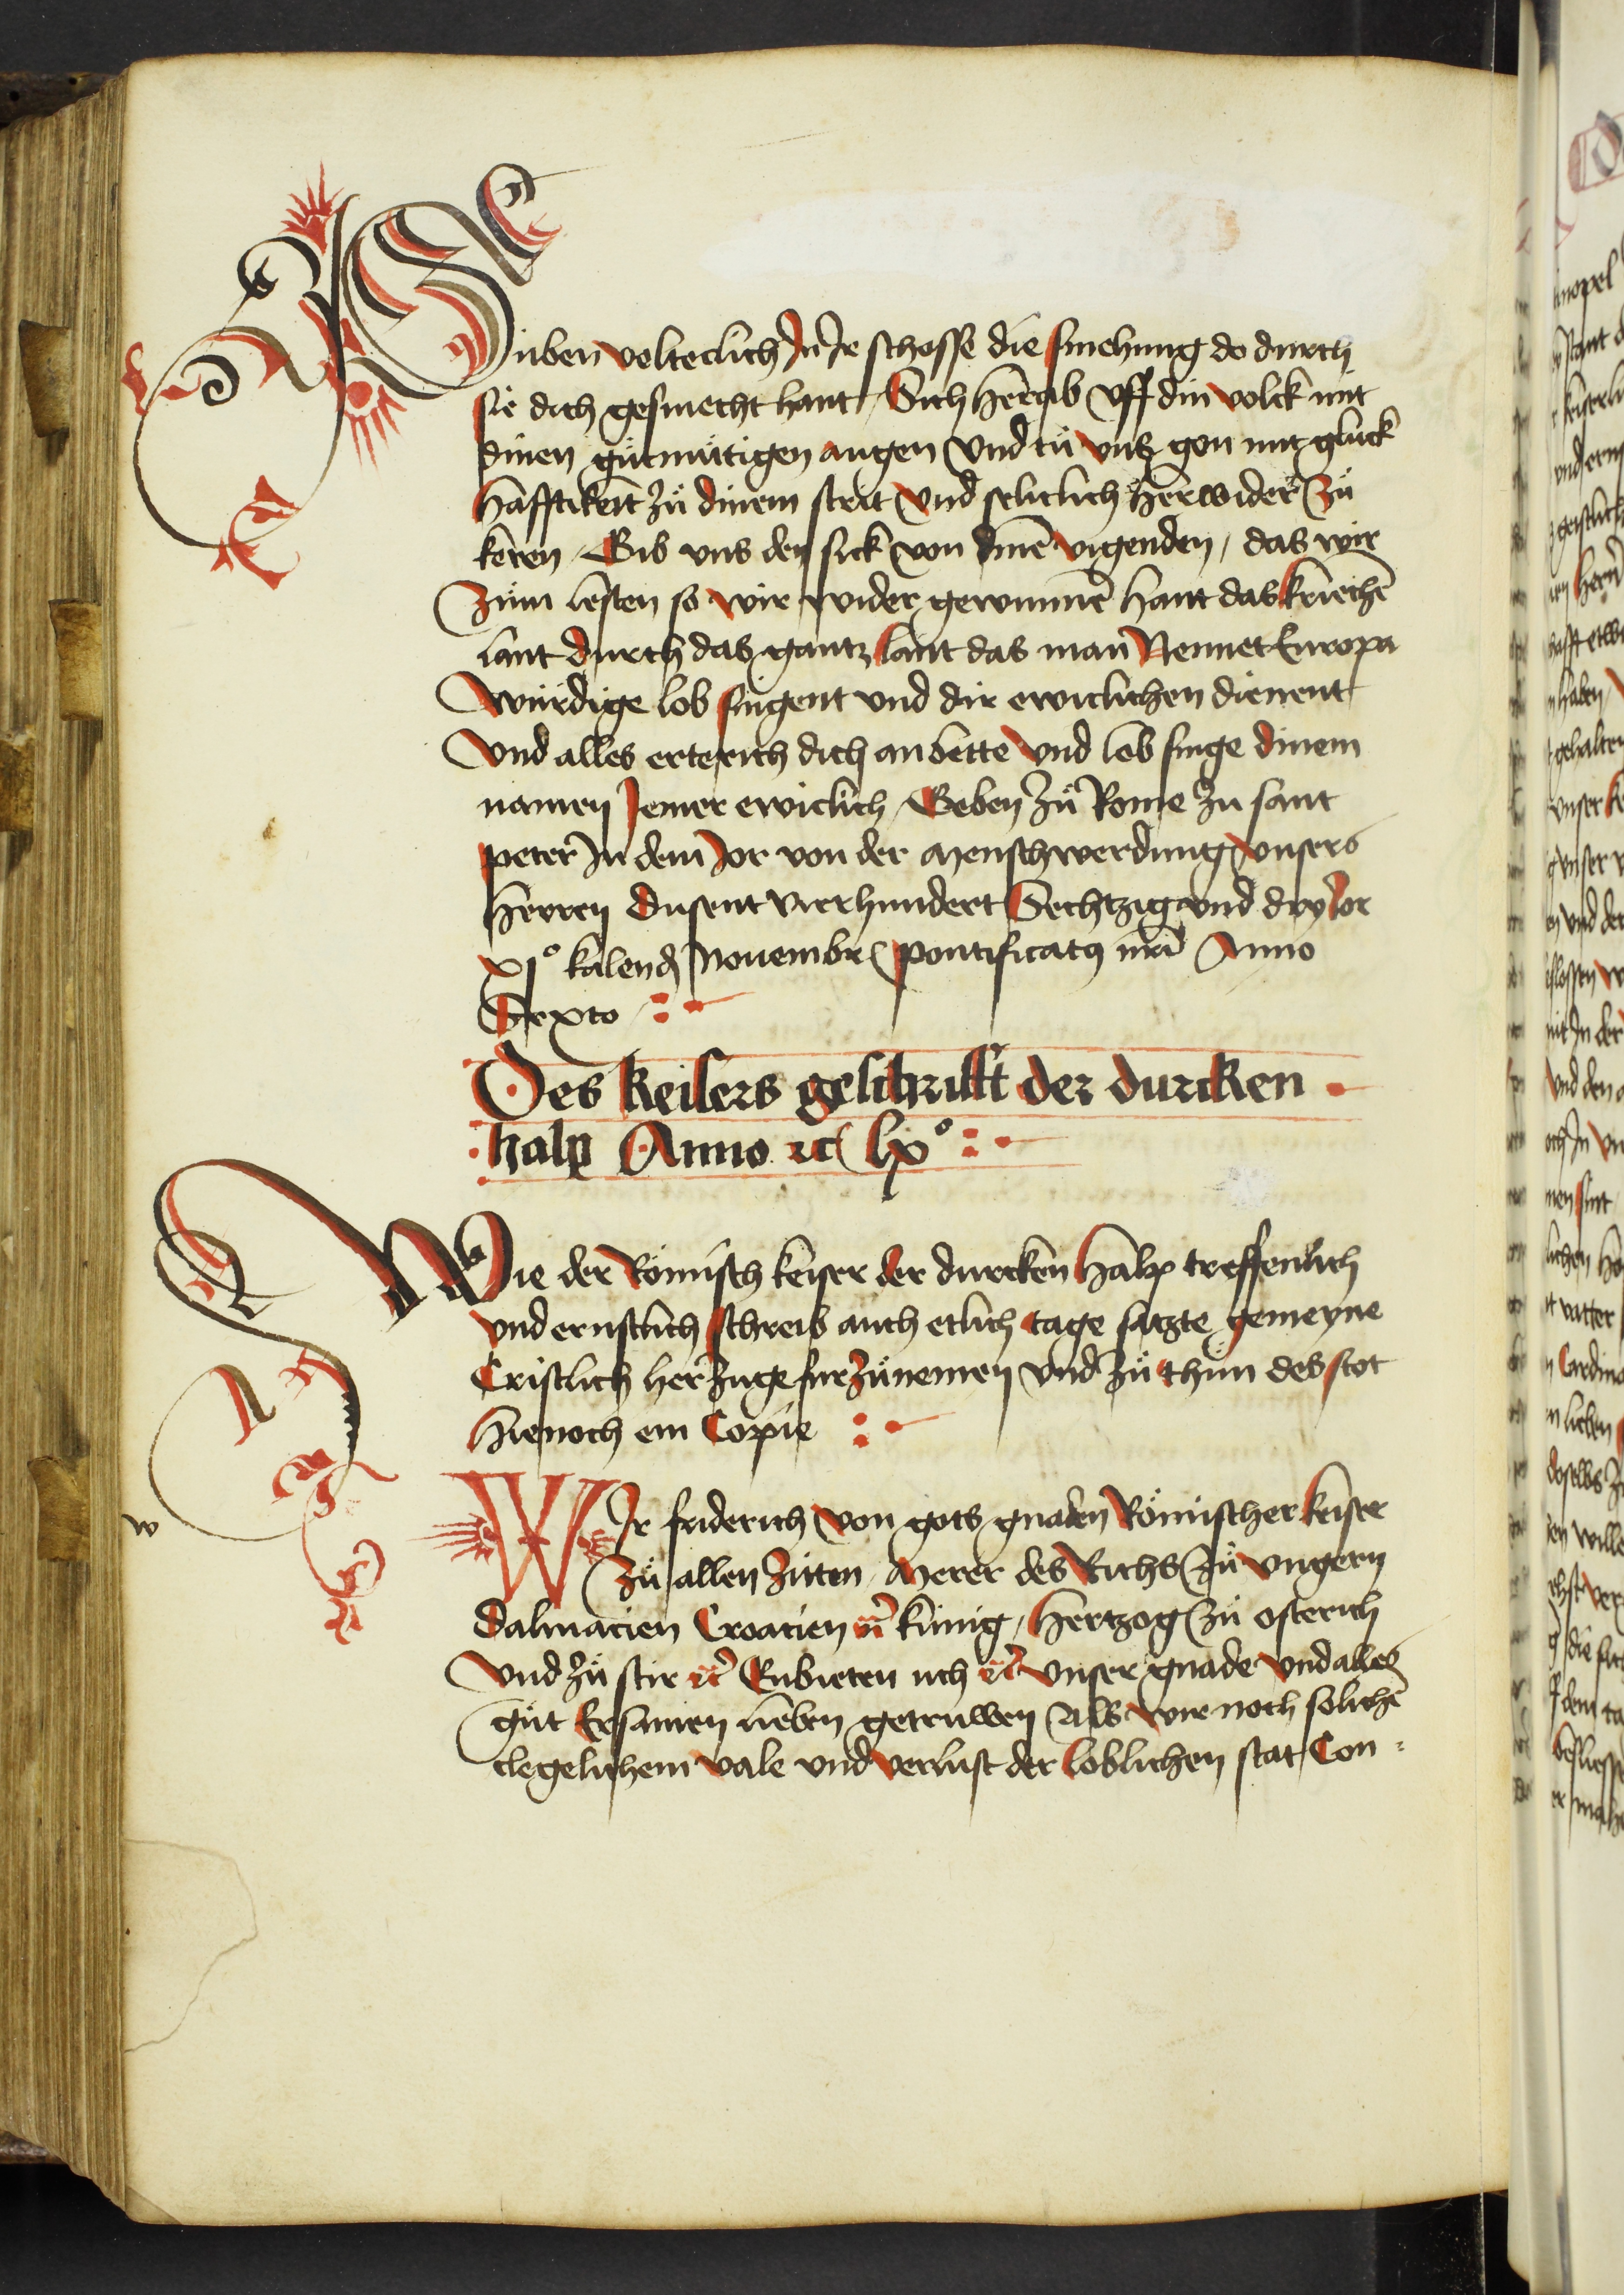 Siben velteclich Jn Jr schosse die smehung do durch
sie dich gesmecht hant / Sich herab vff din volck mit
dinen gütmütigen augen vnd tů vns gon mit glück
hafftikeit zů dinem strit vnd seliclich herwider zů
keren / Gib vns den sick von dinē vigenden / das wir
Zům lesten so wir wider gewinnē hant das kriechē
lant durch das gantz lant das man Nennet Europa
würdige lob singent vnd dir ewiclichen dienent
Vnd alles erterich dich anbette vnd lob singe dinem
namen Jemer ewiclich / Geben zů Rome zu sant
peter Jn dem Jor von der menschwerdung vnsers
herren dusent vierhundert Sechtzig vnd dry Jor
xjº kalend Nouembr pontificatꝰ nrī Anno
Sexto
Des keisers geschrifft der durcken
halp Anno ⁊c lxº
Wie der Römisch keiser der durcken halp treffenlich
vnd ernstlich schreib auch etlich tage satzte gemeyne
Cristlich herzuge fur zůnemen vnd zů thün des stot
hienoch ein Copie
w
WJr friderich von gots gnaden Römischer keiser
zů allen zitten / Merer des Richs zů vngern
dalmacien Croacien ⁊c̄ künig / hertzog zů osterich
Vnd zů stir ⁊c̄ Enbieten uch ⁊c̄ vnser gnade vnd alles
gůt Ersamen lieben getruwen Als wir noch solichē
clegelichem vale vnd verlust der loblichen stat Con =